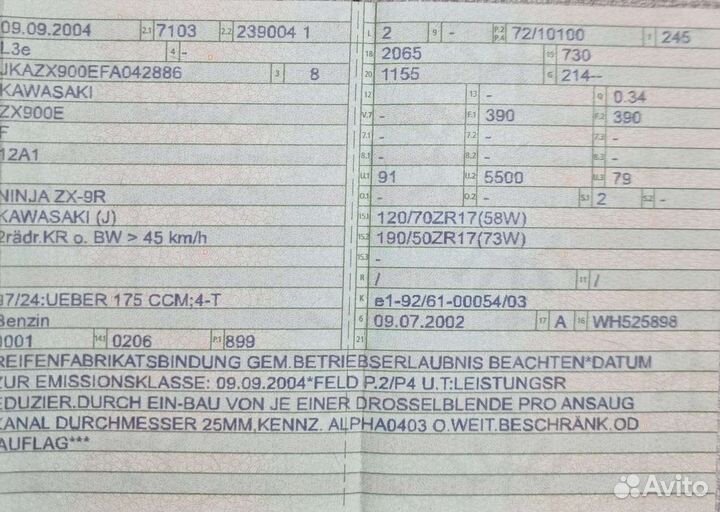 09.09.2004 2.1 7103 2.2 239004 1 L 2 9 - P.2 P.4 72/10100 T 245
L3e 4 - 18 2065 19 730
JKAZX900EFA042886 3 8 20 1155 G 214--
KAWASAKI 12 - 13 - Q 0.34
ZX900E V.7 - F.1 390 F.2 390
F 7.1 - 7.2 - 7.3 -
12A1 8.1 - 8.2 - 8.3 -
U.1 91 U.2 5500 U.3 79
NINJA ZX-9R O.1 - O.2 - S.1 2 S.2 -
KAWASAKI (J) 15.1 120/70ZR17(58W)
2rädr.KR o. BW > 45 km/h 15.2 190/50ZR17(73W)
15.3 -
R / 11 /
97/24:UEBER 175 CCM;4-T K e1-92/61-00054/03
Benzin 6 09.07.2002 17 A 16 WH525898
0001 14.1 0206 P.1 899 21
REIFENFABRIKATSBINDUNG GEM.BETRIEBSERLAUBNIS BEACHTEN*DATUM
ZUR EMISSIONSKLASSE: 09.09.2004*FELD P.2/P4 U.T:LEISTUNGSR
EDUZIER.DURCH EIN-BAU VON JE EINER DROSSELBLENDE PRO ANSAUG
KANAL DURCHMESSER 25MM,KENNZ. ALPHA0403 O.WEIT.BESCHRÄNK.OD
AUFLAG***
Avito